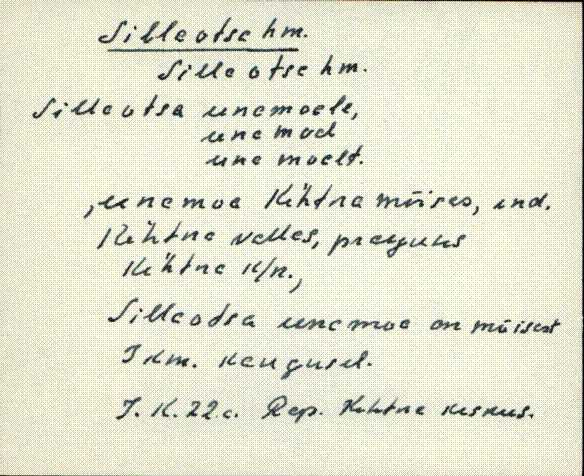 Silleotsa hm.
Silleotsa hm.
Silleotsa unemoele,
une mod
une moelt.
, unemoa Kehtna mõisas, end.
Kehtna vallas, praegune
Kehtna k/n.,
Silleotsa unemoa on mõisast
3 km. kaugusel.
J. K. 22 a. Rap. Kehtna keskus.